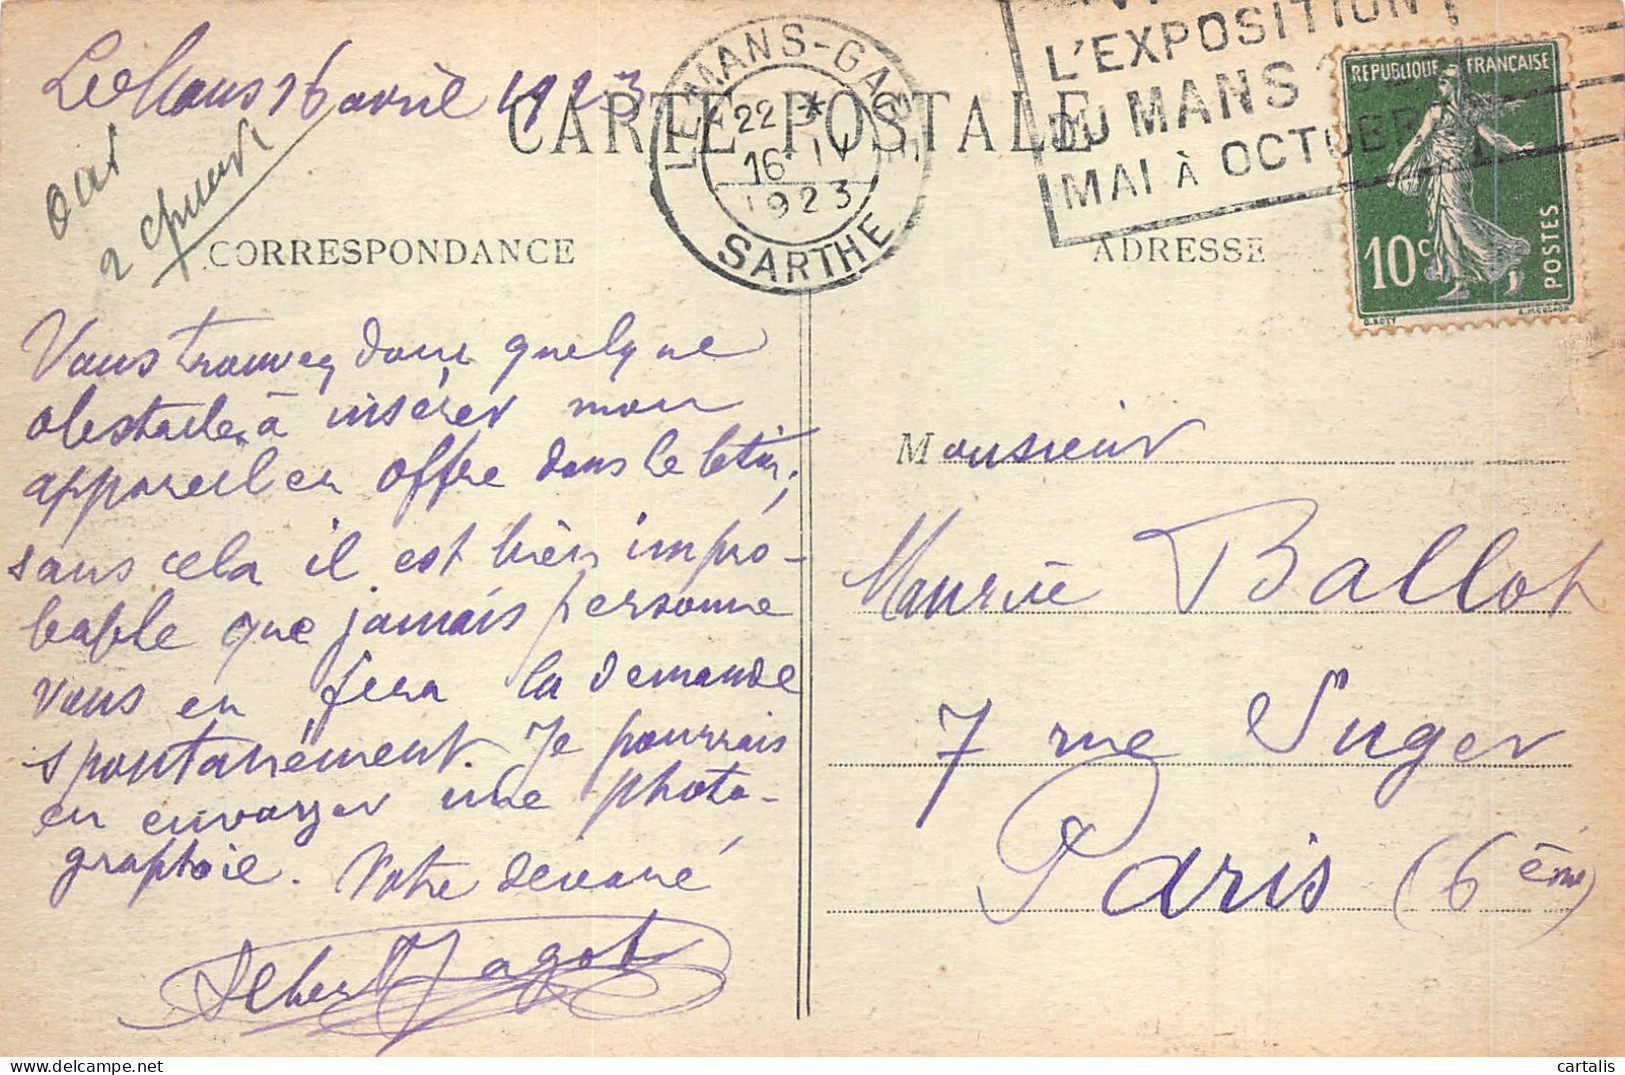 Le Mans 16 avril 1923
CARTE POSTALE
LE MANS-GARE
22 *
16 IV
1923
SARTHE
L'EXPOSITION
DU MANS
MAI À OCTOBRE
REPUBLIQUE FRANÇAISE
10c
POSTES
O. ROTY
E. MOUCHON
2
CORRESPONDANCE
ADRESSE
Vous trouvez donc quelque
obstacle à insérer mon
appareil en offre dans le
sans cela il est bien impro-
bable que jamais personne
vous en fera la demande
spontanément. Je pourrais
en envoyer une photo-
graphie. Votre dévoué
Albert Jagot
Monsieur
Maurice Ballot
7 rue Suger
Paris (6ème)
cartalis